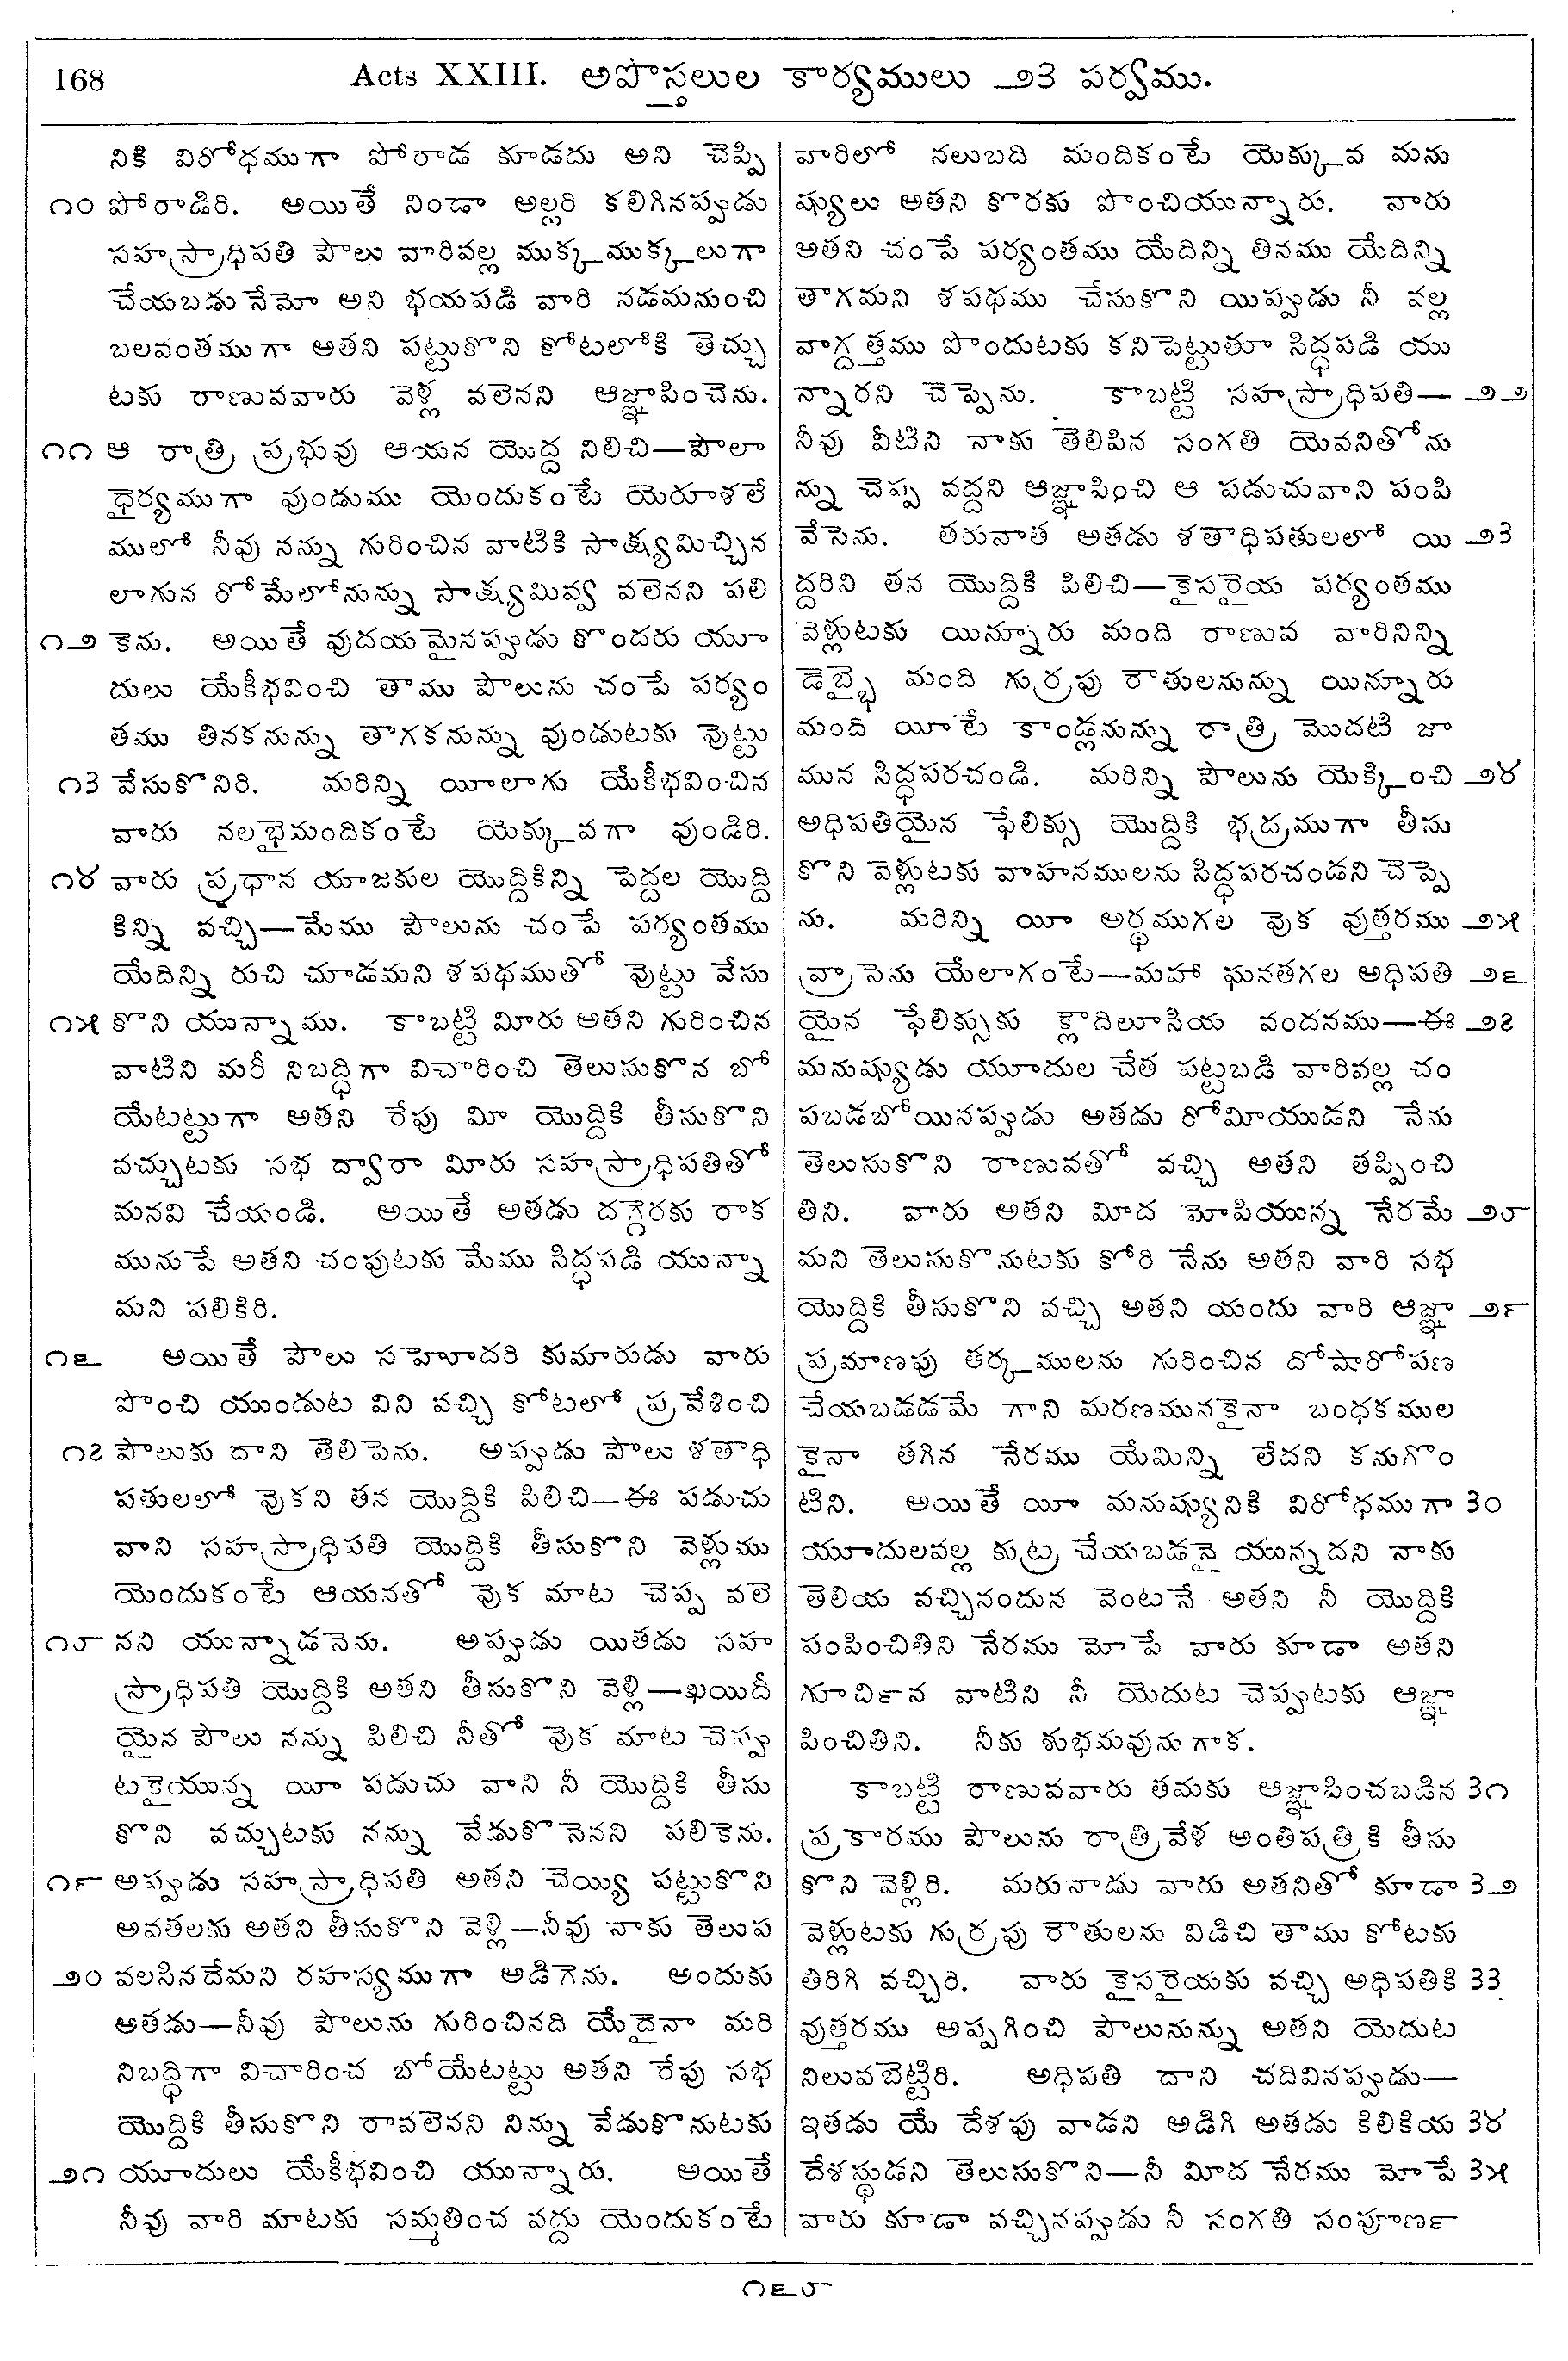 168 Acts XXIII. అపొస్తలుల కార్యములు ౨౩ పర్వము.
నికి విరోధముగా పోరాడ కూడదు అని చెప్పి
౧౦ పోరాడిరి. అయితే నిండా అల్లరి కలిగినప్పుడు
సహస్రాధిపతి పౌలు వారివల్ల ముక్కముక్కలుగా
చేయబడునేమో అని భయపడి వారి నడమనుంచి
బలవంతముగా అతని పట్టుకొని కోటలోకి తెచ్చు
టకు రాణువవారు వెళ్ల వలెనని ఆజ్ఞాపించెను.
౧౧ ఆ రాత్రి ప్రభువు ఆయన యొద్ద నిలిచి—పౌలా
ధైర్యముగా వుండుము యెందుకంటే యెరూశలే
ములో నీవు నన్ను గురించిన వాటికి సాక్ష్యమిచ్చిన
లాగున రోమేలోనున్ను సాక్ష్యమివ్వ వలెనని పలి
౧౨ కెను. అయితే వుదయమైనప్పుడు కొందరు యూ
దులు యేకీభవించి తాము పౌలును చంపే పర్యం
తము తినకనున్ను తాగకనున్ను వుండుటకు వొట్టు
౧౩ వేసుకొనిరి. మరిన్ని యీలాగు యేకీభవించిన
వారు నలభైమందికంటే యెక్కువగా వుండిరి.
౧౪ వారు ప్రధాన యాజకుల యొద్దికిన్ని పెద్దల యొద్ది
కిన్ని వచ్చి—మేము పౌలును చంపే పర్యంతము
యేదిన్ని రుచి చూడమని శపథముతో వొట్టు వేసు
౧౫ కొని యున్నాము. కాబట్టి మీరు అతని గురించిన
వాటిని మరీ నిబద్ధిగా విచారించి తెలుసుకొన బో
యేటట్టుగా అతని రేపు మీ యొద్దికి తీసుకొని
వచ్చుటకు సభ ద్వారా మీరు సహస్రాధిపతితో
మనవి చేయండి. అయితే అతడు దగ్గెరకు రాక
మునుపే అతని చంపుటకు మేము సిద్ధపడి యున్నా
మని పలికిరి.
౧౬ అయితే పౌలు సహోదరి కుమారుడు వారు
పొంచి యుండుట విని వచ్చి కోటలో ప్రవేశించి
౧౭ పౌలుకు దాని తెలిపెను. అప్పుడు పౌలు శతాధి
పతులలో వొకని తన యొద్దికి పిలిచి—ఈ పడుచు
వాని సహస్రాధిపతి యొద్దికి తీసుకొని వెళ్లుము
యెందుకంటే ఆయనతో వొక మాట చెప్ప వలె
౧౮ నని యున్నాడనెను. అప్పుడు యితడు సహ
స్రాధిపతి యొద్దికి అతని తీసుకొని వెళ్లి—ఖయిదీ
యైన పౌలు నన్ను పిలిచి నీతో వొక మాట చెప్పు
టకైయున్న యీ పడుచు వాని నీ యొద్దికి తీసు
కొని వచ్చుటకు నన్ను వేడుకొనెనని పలికెను.
౧౯ అప్పుడు సహస్రాధిపతి అతని చెయ్యి పట్టుకొని
అవతలకు అతని తీసుకొని వెళ్లి—నీవు నాకు తెలుప
౨౦ వలసినదేమని రహస్యముగా అడిగెను. అందుకు
అతడు—నీవు పౌలును గురించినది యేదైనా మరి
నిబద్ధిగా విచారించ బోయేటట్టు అతని రేపు సభ
యొద్దికి తీసుకొని రావలెనని నిన్ను వేడుకొనుటకు
౨౧ యూదులు యేకీభవించి యున్నారు. అయితే
నీవు వారి మాటకు సమ్మతించ వద్దు యెందుకంటే
వారిలో నలుబది మందికంటే యెక్కువ మను
ష్యులు అతని కొరకు పొంచియున్నారు. వారు
అతని చంపే పర్యంతము యేదిన్ని తినము యేదిన్ని
తాగమని శపథము చేసుకొని యిప్పుడు నీ వల్ల
వాగ్దత్తము పొందుటకు కనిపెట్టుతూ సిద్ధపడి యు
న్నారని చెప్పెను. కాబట్టి సహస్రాధిపతి— ౨౨
నీవు వీటిని నాకు తెలిపిన సంగతి యెవనితోను
న్ను చెప్ప వద్దని ఆజ్ఞాపించి ఆ పడుచువాని పంపి
వేసెను. తరువాత అతడు శతాధిపతులలో యి ౨౩
ద్దరిని తన యొద్దికి పిలిచి—కైసరైయ పర్యంతము
వెళ్లుటకు యిన్నూరు మంది రాణువ వారినిన్ని
డెబ్భై మంది గుర్రపు రౌతులనున్ను యిన్నూరు
మంది యీటే కాండ్లనున్ను రాత్రి మొదటి జా
మున సిద్ధపరచండి. మరిన్ని పౌలును యెక్కించి ౨౪
అధిపతియైన ఫేలిక్సు యొద్దికి భద్రముగా తీసు
కొని వెళ్లుటకు వాహనములను సిద్ధపరచండని చెప్పె
ను. మరిన్ని యీ అర్థముగల వొక వుత్తరము ౨౫
వ్రాసెను యేలాగంటే—మహా ఘనతగల అధిపతి ౨౬
యైన ఫేలిక్సుకు క్లౌదిలూసియ వందనము—ఈ ౨౭
మనుష్యుడు యూదుల చేత పట్టబడి వారివల్ల చం
పబడబోయినప్పుడు అతడు రోమీయుడని నేను
తెలుసుకొని రాణువతో వచ్చి అతని తప్పించి
తిని. వారు అతని మీద మోపియున్న నేరమే ౨౮
మని తెలుసుకొనుటకు కోరి నేను అతని వారి సభ
యొద్దికి తీసుకొని వచ్చి అతని యందు వారి ఆజ్ఞా ౨౯
ప్రమాణపు తర్కములను గురించిన దోషారోపణ
చేయబడడమే గాని మరణమునకైనా బంధకముల
కైనా తగిన నేరము యేమిన్ని లేదని కనుగొం
టిని. అయితే యీ మనుష్యునికి విరోధముగా ౩౦
యూదులవల్ల కుట్ర చేయబడనై యున్నదని నాకు
తెలియ వచ్చినందున వెంటనే అతని నీ యొద్దికి
పంపించితిని నేరము మోపే వారు కూడా అతని
గూచి౯న వాటిని నీ యెదుట చెప్పుటకు ఆజ్ఞా
పించితిని. నీకు శుభమవునుగాక.
కాబట్టి రాణువవారు తమకు ఆజ్ఞాపించబడిన ౩౧
ప్రకారము పౌలును రాత్రివేళ అంతిపత్రికి తీసు
కొని వెళ్లిరి. మరునాడు వారు అతనితో కూడా ౩౨
వెళ్లుటకు గుర్రపు రౌతులను విడిచి తాము కోటకు
తిరిగి వచ్చిరి. వారు కైసరైయకు వచ్చి అధిపతికి ౩౩
వుత్తరము అప్పగించి పౌలునున్ను అతని యెదుట
నిలువబెట్టిరి. అధిపతి దాని చదివినప్పుడు—
ఇతడు యే దేశపు వాడని అడిగి అతడు కిలికియ ౩౪
దేశస్థుడని తెలుసుకొని—నీ మీద నేరము మోపే ౩౫
వారు కూడా వచ్చినప్పుడు నీ సంగతి సంపూణ౯
౧౬౮